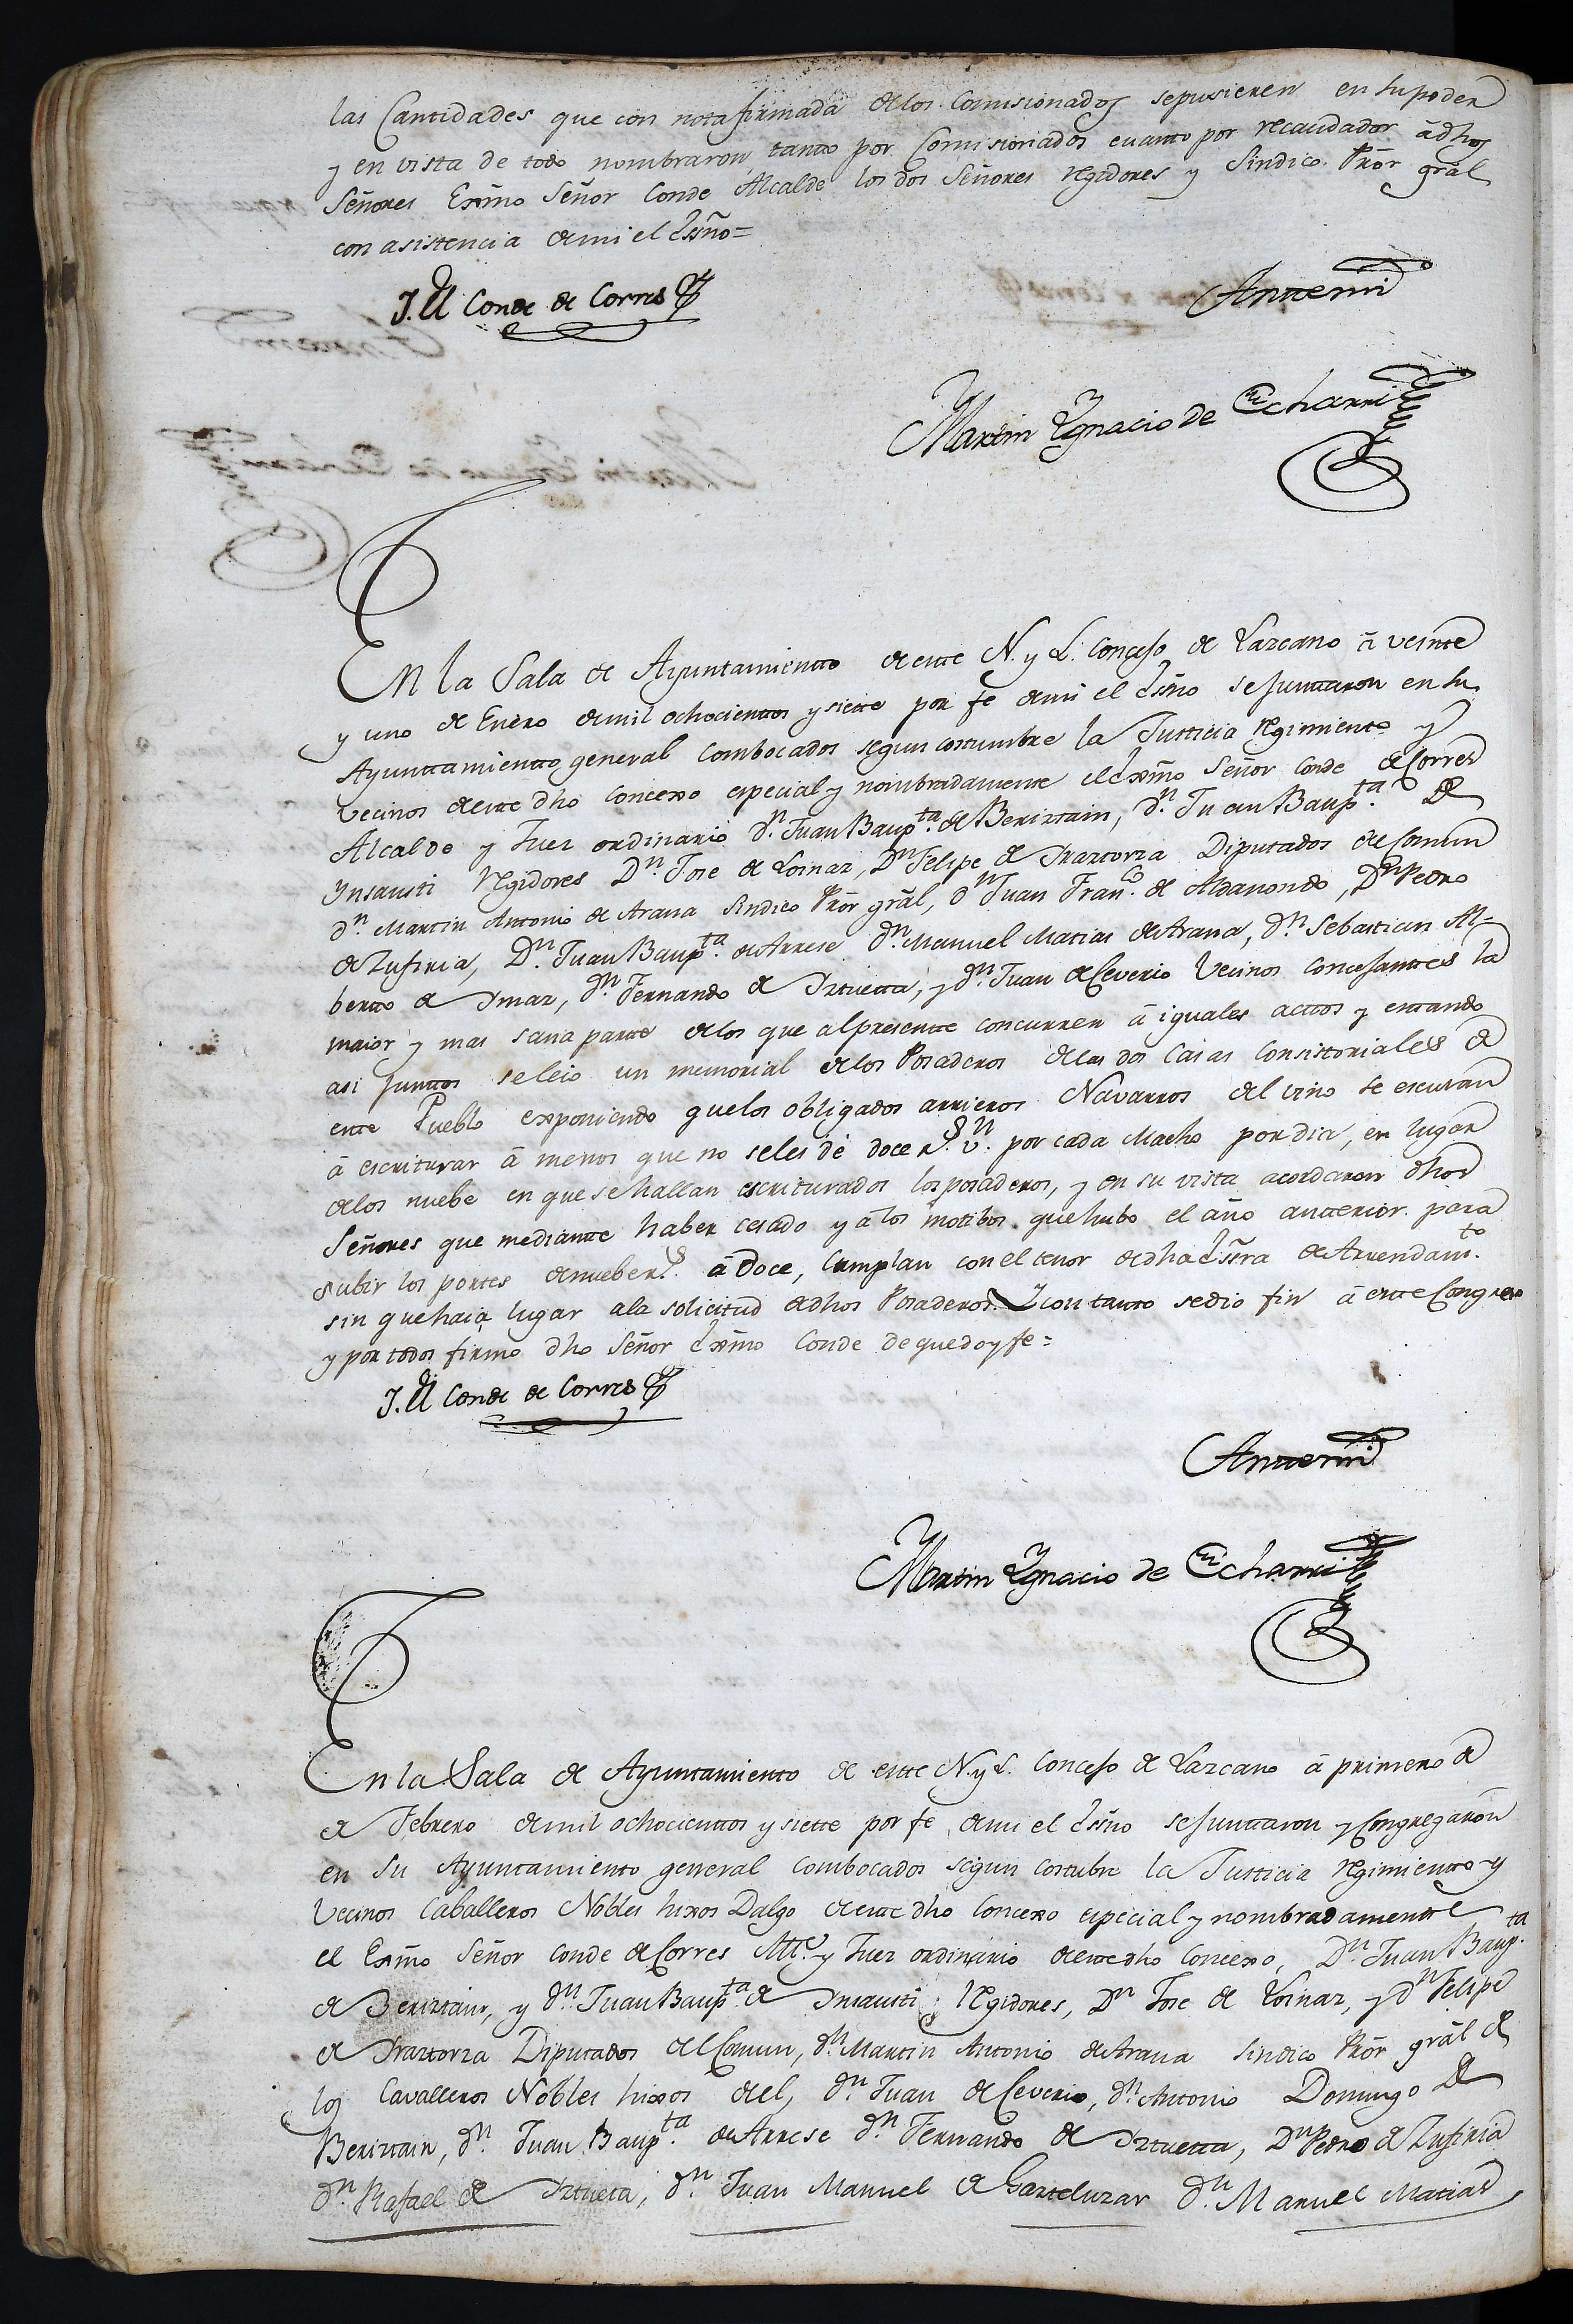 las Cantidades que con nota firmada de los Comisionados se pusieren en su poder
y en vista de todo nombraron tanto por Comisionados cuanto por recaudador â dhos
Señores Exmo Señor Conde Alcalde los dos Señores regidores y Sindico Prôr grâl
con asistencia de mi el Essño=
J. El Conde de Corres
Antemi
Martin Ygnacio de Echarri
En la Sala de Ayuntamiento de este N. y L. Concejo de Lazcano â veinte
y uno de Enero de mil ochocientos y siette por fe de mi el Essño se junttaron en su
Ayunttamiento general combocados segun costumbre la Justicia regimiento y
vecinos de este dho Concexo especial y nombradamente el Exmo Señor Conde de Corres
Alcalde y Juez ordinario Dn. Juan Baupta. de Beriztain, Dn. Juan Baupta. de
Ynsausti Regidores Dn. Jose de Loinaz, Dn Felipe de Yraztorza Diputados del Comun
Dn. Martin Antonio de Arana Sindico Prôr grâl, Dn Juan Franco. de Aldanondo, Dn Pedro
de Zufiria, Dn. Juan Baupta. de Arrese Dn. Manuel Matias de Arana, Dn. Sebastian Al-
bertto de Ymaz, Dn. Fernando de Yztuetta, y Dn. Juan de Ceverio Vecinos concejanttes la
maior y mas sana parte de los que al presentte concurren â iguales acttos y estando
asi junttos se leio un memorial de los Posaderos de las dos Casas Consistoriales de
este Pueblo exponiendo que los obligados arrieros Navarros del vino se escusan
â escriturar â menos que no se les dé doce rs. vn. por cada Macho por dia, en lugar
de los nuebe en que se hallan escriturados los posaderos, y en su vista acordaron dhos
Señores que mediantte haber cesado ya los motibos que hubo el año antterior para
subir los portes de nueve rs. â doce, Cumplan con el tenor de dha Essra de Arrendamto.
sin que haia lugar a la solicitud de dhos Posaderos. Y con tanto se dio fin â este Congreso
y por todos firmo dho Señor Exmo Conde de que doy fe=
J. El Conde de Corres
Antemi
Martin Ygnacio de Echarri
En la Sala de Ayuntamiento de este N. y L. Concejo de Lazcano â primero de
de Febrero de mil ochocienttos y siette por fe de mi el Essño se junttaron y Congregaron
en su Ayuntamiento general combocados segun costubre la Justicia regimientto y
Vecinos Caballeros Nobles hixos Dalgo de este dho Concexo especial y nombradamentte
el Exmo Señor Conde de Corres Alle. y Juez ordinario de este dho Concexo, Dn. Juan Baupta.
de Beriztain, y Dn. Juan Baupta. de Ynsausti Regidores, Dn Jose de Loinaz, y Dn Felipe
de Yraztorza Diputados del Comun, Dn. Martin Antonio de Arana Sindico Prôr grâl de
los Cavalleros Nobles hixos de el, Dn. Juan de Ceverio, Dn. Antonio Domingo de
Beriztain, Dn. Juan Baupta. de Arrese Dn. Fernando de Yztuetta, Dn Pedro de Zufiria
Dn. Rafael de Yztueta, Dn. Juan Manuel de Garteluzar Dn. Manuel Matias